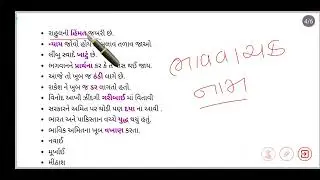 4/6
રાહુલની હિંમત જબરી છે.
ન્યાય જોવો હોય
તળાવ જાઓ
લીંબુ સ્વાદે ખાટું છે.
ભગવાનને પ્રાર્થના કર કે તે પાસ થઈ જાય.
આજે તો ખૂબ જ ઠંડી લાગે છે.
રાકેશ ને ખૂબ જ ડર લાગતો હતો.
વિનોદ આખી ઝીંદગી ગરીબાઈ માં વિતાવી
સરકારને અમિત પર થોડી પણ દયા નાં આવી.
ભારત અને પાકિસ્તાન વચ્ચે યુદ્ધ થયું હતું.
ભાવિક અમિતના ખૂબ વખાણ કરતા.
નવાઈ
મૂર્ખાઈ
મીઠાશ
ભાવવાચક
નામ